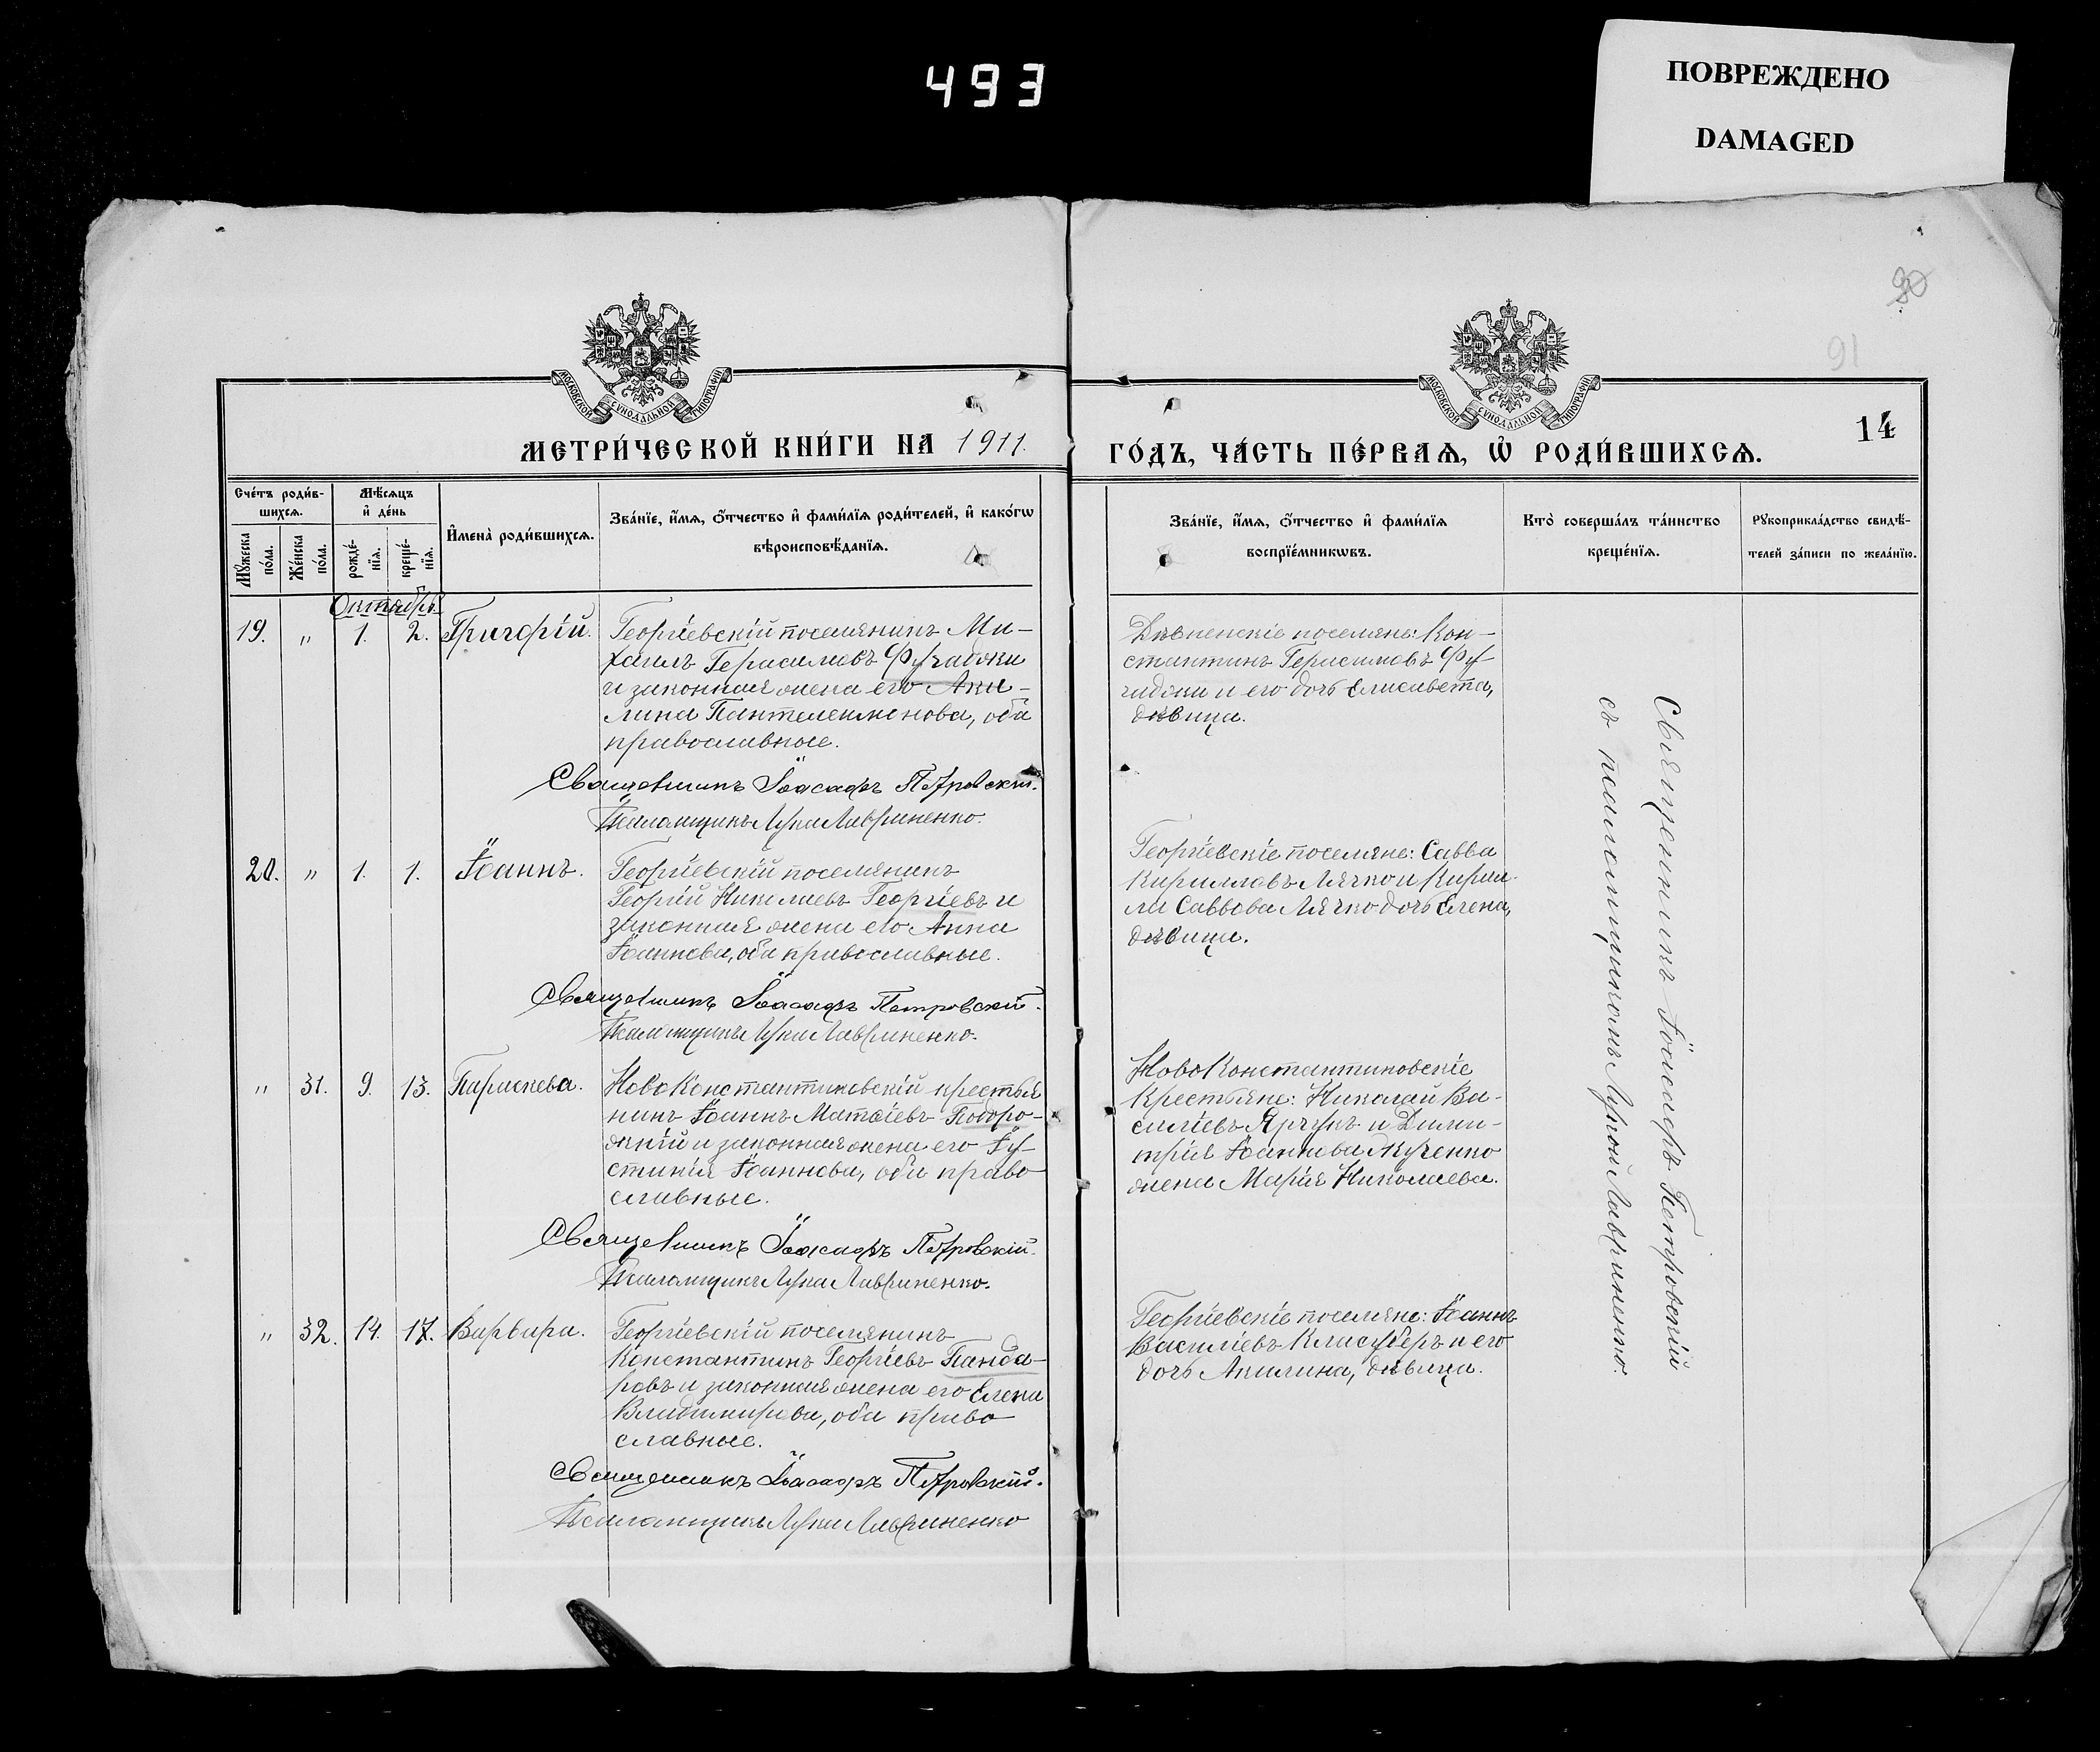 493
ПОВРЕЖДЕНО
DAMAGED
91
МОСКОВСКОЙ СѴНОДАЛЬНОЙ ТИПОГРАФІИ
МОСКОВСКОЙ СѴНОДАЛЬНОЙ ТИПОГРАФІИ
МЕТРИ́ЧЕСКОЙ КНИ́ГИ НА 1911.
ГО́ДЪ, ЧА́СТЬ ПЕ́РВАѦ, Ѡ҆ РОДИ́ВШИХСѦ.
14
Сче́тъ роди́в-
шихсѧ.
Мꙋ́жеска
по́ла.
Же́нска
по́ла.
Мѣ́сѧцъ
и҆ де́нь
рожде́-
нїѧ.
креще́-
нїѧ.
И҆мена̀ роди́вшихсѧ.
Зва́нїе, и҆́мѧ, ѻ҆́тчество и҆ фами́лїѧ роди́телей, и҆ како́гѡ
вѣроисповѣ́данїѧ.
Зва́нїе, и҆́мѧ, ѻ҆́тчество и҆ фами́лїѧ
воспрїе́мникѡвъ.
Кто̀ соверша́лъ та́инство
креще́нїѧ.
Рꙋкоприкла́дство свидѣ́-
телей за́писи по жела́нїю.
Октябрь
19. " 1. 2. Григорій.
Георгіевскій поселянинъ Ми-
хаилъ Герасимовъ Фучаджи
и законная жена его Аки-
лина Пантелеимонова, оба
православные.
Священникъ Іоасафъ Петровскій.
Псаломщикъ Лука Лавриненко.
Дивненскіе поселяне: Кон-
стантинъ Герасимовъ Фу-
чиджи и его дочь Елисавета,
дѣвица.
20. " 1. 1. Іоаннъ.
Георгіевскій поселянинъ
Георгій Николаевъ Георгіевъ и
законная жена его Анна
Іоаннова, оба православные.
Священникъ Іоасафъ Петровскій.
Псаломщикъ Лука Лавриненко.
Георгіевскіе поселяне: Савва
Кирилловъ Лячко и Кирил-
ла Саввова Лячко дочь Елена,
дѣвица.
" 31. 9. 13. Параскева.
НовоКонстантиновскій крестья
нинъ Іоаннъ Матѳіевъ Подоро-
жній и законная жена его Іу-
стинія Іоаннова, оба право
славные.
Священникъ Іоасафъ Петровскій.
Псаломщикъ Лука Лавриненко.
НовоКонстантиновскіе
крестьяне: Николай Ва-
силіевъ Ярчукъ и Дими-
трія Іоаннова Куценко
жена Марія Николаева.
" 32. 14. 17. Варвара.
Георгіевскій поселянинъ
Константинъ Георгіевъ Панда-
ровъ и законная жена его Елена
Владимирова, оба право
славные.
Священникъ Іоасафъ Петровскій.
Псаломщикъ Лука Лавриненко
Георгіевскіе поселяне: Іоаннъ
Василіевъ и его
дочь Акилина, дѣвица.
Священникъ Іоасафъ Петровскій
съ псаломщикомъ Лукой Лавриненко.